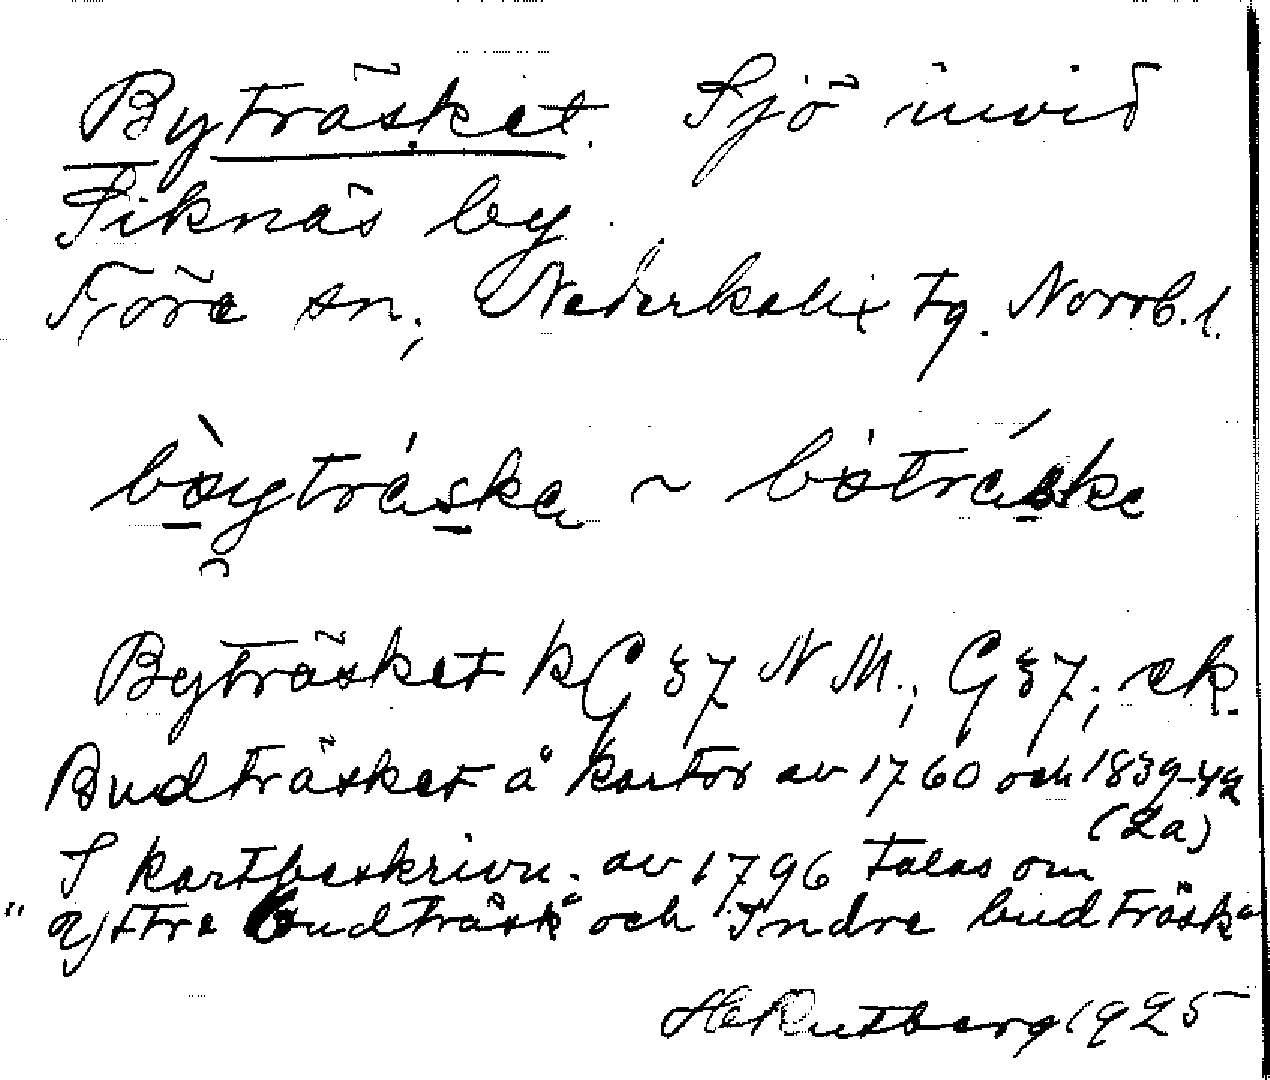 Byträsket. Sjö invid
Siknäs by.
Töre sn, Nederkalix tg. Norrb. l.
Byträsket kG 37 N M.; G 37; ek.
Budträsket å kartor av 1760 och 1839-42
(2a)
I kartbeskrivn. av 1796 talas om
"Yttre budträsk" och "Indre budträsk"
H Rutberg 1925